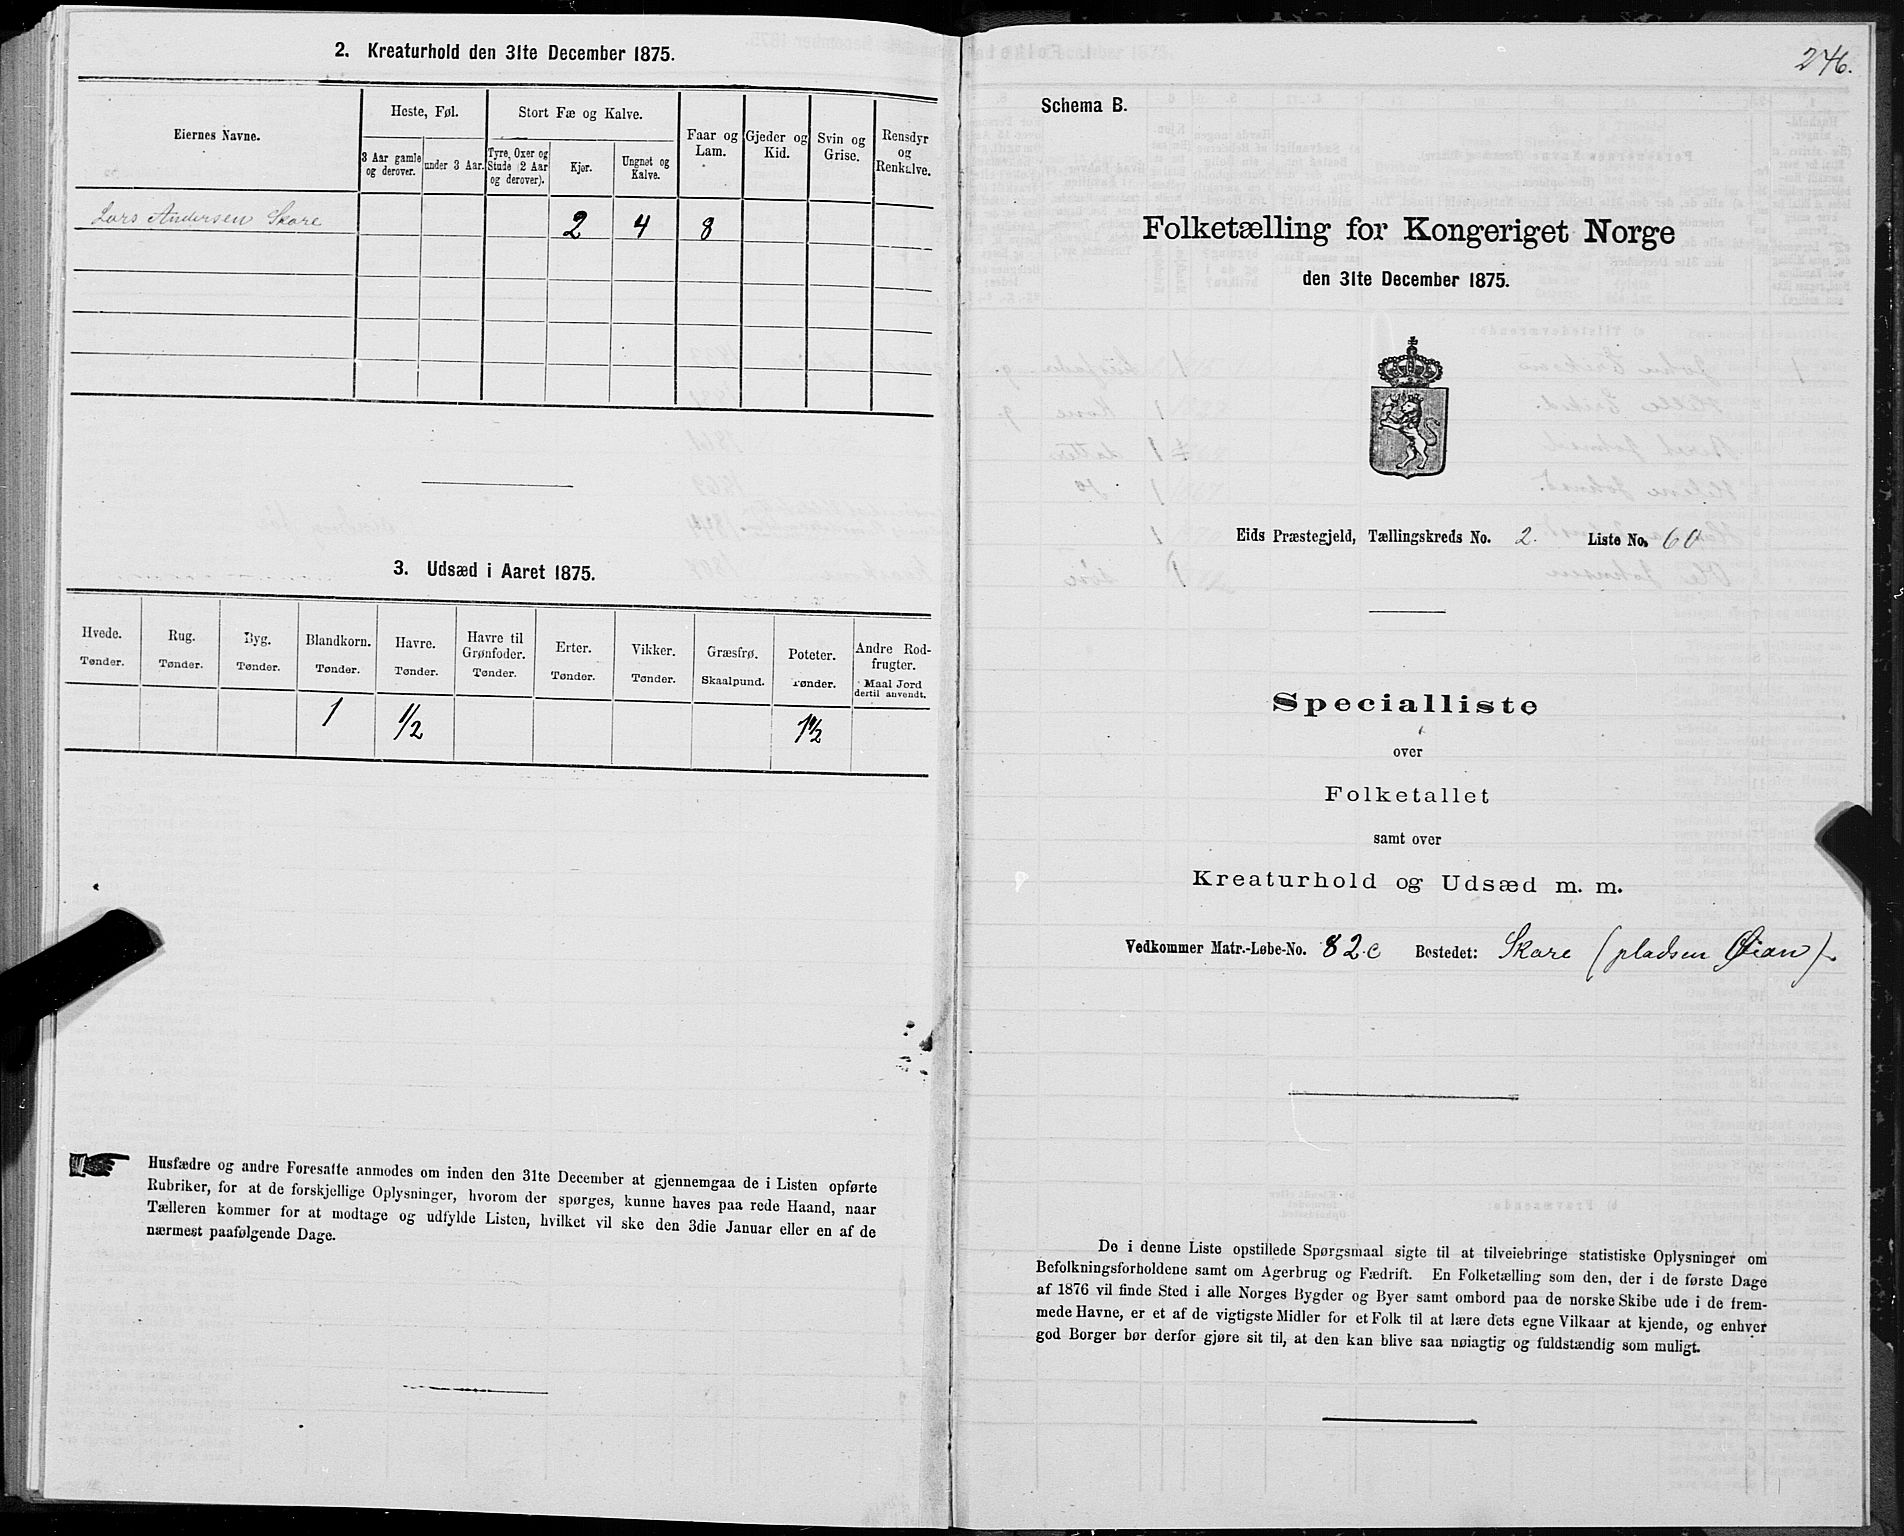 2. Kreaturhold den 31te December 1875.
Eiernes Navne.
Heste, Føl.
Stort Fæ og Kalve.
Faar og Lam.
Gjeder og Kid.
Svin og Grise.
Rensdyr og Renkalve.
3 Aar gamle og derover.
under 3 Aar.
Tyre, Oxer og Stude (2 Aar og derover).
Kjør.
Ungnøt og Kalve.
Lars Andersen Skare 2 4 8
3. Udsæd i Aaret 1875.
Hvede. Rug. Byg. Blandkorn. Havre. Havre til Grønfoder. Erter. Vikker. Græsfrø. Poteter. Andre Rodfrugter.
Tønder. Tønder. Tønder. Tønder. Tønder. Tønder. Tønder. Tønder. Skaalpund. Tønder. Maal Jord dertil anvendt.
1 1/2 1 1/2
Husfædre og andre Foresatte anmodes om inden den 31te December at gjennemgaa de i Listen opførte
Rubriker, for at de forskjellige Oplysninger, hvorom der spørges, kunne haves paa rede Haand, naar
Tælleren kommer for at modtage og udfylde Listen, hvilket vil ske den 3die Januar eller en af de
nærmest paafølgende Dage.
246.
Schema B.
Folketælling for Kongeriget Norge
den 31te December 1875.
Eids Præstegjeld, Tællingskreds No. 2. Liste No. 60
Specialliste
over
Folketallet
samt over
Kreaturhold og Udsæd m. m.
Vedkommer Matr.-Løbe-No. 82 c Bostedet: Skare (pladsen Øian)
De i denne Liste opstillede Spørgsmaal sigte til at tilveiebringe statistiske Oplysninger om
Befolkningsforholdene samt om Agerbrug og Fædrift. En Folketælling som den, der i de første Dage
af 1876 vil finde Sted i alle Norges Bygder og Byer samt ombord paa de norske Skibe ude i de frem-
mede Havne, er et af de vigtigste Midler for et Folk til at lære dets egne Vilkaar at kjende, og enhver
god Borger bør derfor gjøre sit til, at den kan blive saa nøiagtig og fuldstændig som muligt.